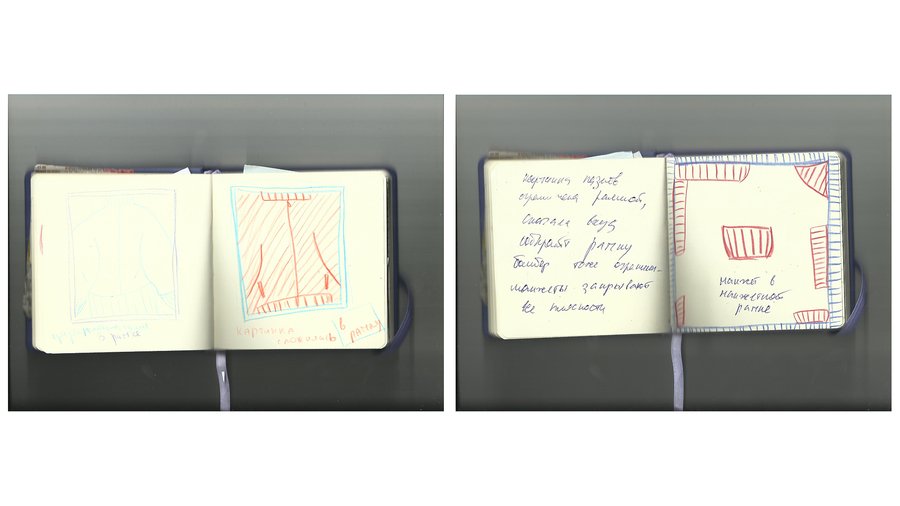 в раме
картинка
сложилась
в
рамку
картинка пазлов
ограничена рамкой,
сначала ищу
собирают рамку
бомбер тоже ограничен-
манжеты закрывают
все плоскости
манжет в
манжетной
рамке